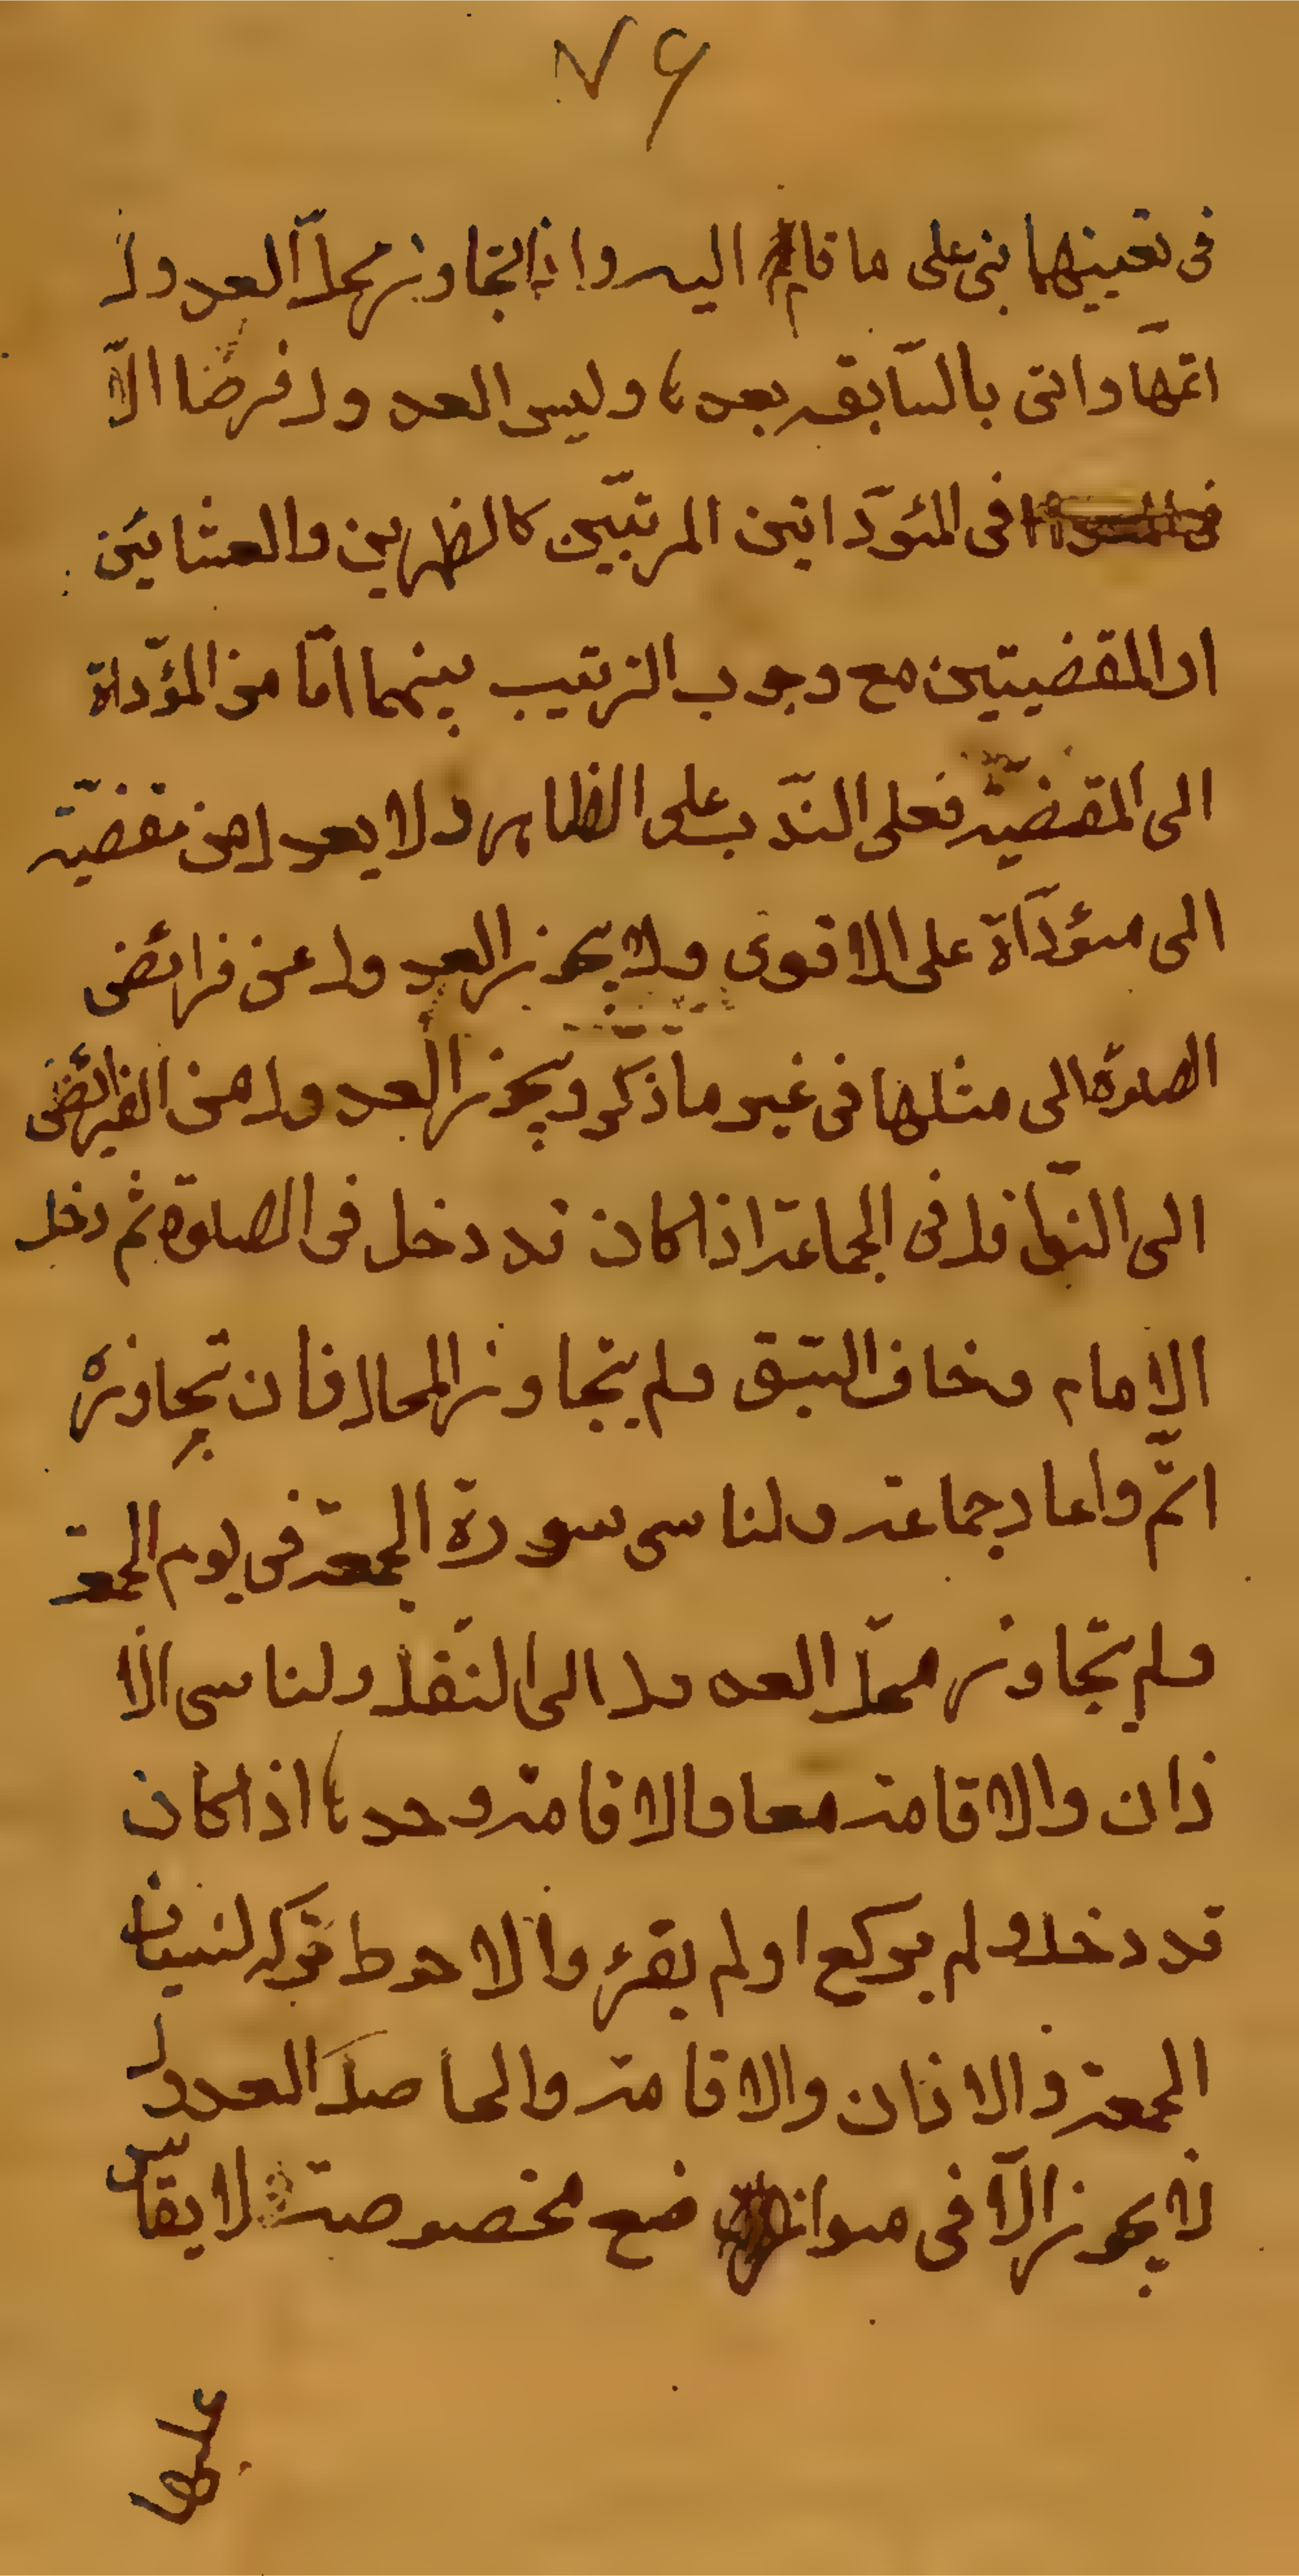 ٧٩
فى تعينهما بنى على ما قام اليه واذا تجاوز محل العدول
اتمها واتى بالسابقه بعدها وليس العدول فرضا الا
فى المؤداتين المرتبتين كالظهرين والعشائين
او المقضيتين مع وجوب الترتيب بينهما امّا من المؤداة
الى المقضيّة فعلى الندب على الظاهر ولا يعدل من مقضيّة
الى مؤداة على الاقوى ولا يجوز العدول عن فرائض
الصلوة الى مثلها فى غير ما ذكر ويجوز العدول من الفرائض
الى النوافل فى الجماعة اذا كان قد دخل فى الصلوة ثم دخل
الامام وخاف السبق ولم يتجاوز المحل فان تجاوزه
اتمّ واعاد جماعة ولناسى سورة الجمعة فى يوم الجمعة
ولم يتجاوز محلّ العدول الى النفل ولناسى الا
ذان والاقامة معا والاقامة وحدها اذا كان
قد دخل ولم يركع او لم يقرء والاحوط تركه لنسيان
الجمعة والاذان والاقامة والحاصل العدول
لا يجوز الّا فى مواضع مخصوصة لا يقاس
عليها